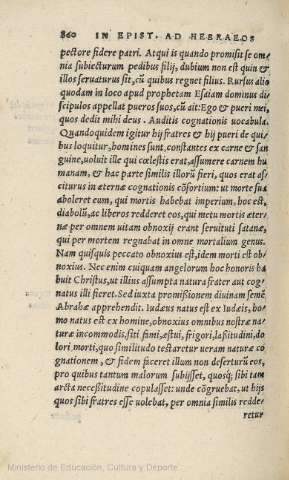 860 IN EPIST. AD HEBRAEOS
pectore fidere patri. Atqui is quando promisit se om
nia subiecturum pedibus filij, dubium non est quin &
illos seruaturus sit, cũ quibus regnet filius. Rursus alio
quodam in loco apud prophetam Esaiam dominus di
scipulos appellat pueros suos, cũ ait: Ego & pueri mei,
quos dedit mihi deus. Auditis cognationis uocabula.
Quandoquidem igitur hij fratres & hij pueri de qui-
bus loquitur, homines sunt, constantes ex carne & san
guine, uoluit ille qui cœlestis erat, assumere carnem hu
manam, & hac parte similis illorũ fieri, quos erat as-
citurus in æternæ cognationis cõsortium: ut morte sua
aboleret eum, qui mortis habebat imperium, hoc est,
diabolũ, ac liberos redderet eos, qui metu mortis æter-
næ per omnem uitam obnoxij erant seruituti satanæ,
qui per mortem regnabat in omne mortalium genus.
Nam quisquis peccato obnoxius est, idem morti est ob-
noxius. Nec enim cuiquam angelorum hoc honoris ha
buit Christus, ut illius assumpta natura frater aut cog-
natus illi fieret. Sed iuxta promissionem diuinam semẽ
Abrahæ apprehendit. Iudæus natus est ex Iudæis, ho-
mo natus est ex homine, obnoxius omnibus nostræ na-
turæ incommodis, siti fami, æstui, frigori, lassitudini, do
lori, morti, quo similitudo testaretur ueram naturæ co
gnationem, & fidem faceret illum non deserturũ eos,
pro quibus tantum malorum subijsset, quosq; sibi tam
arcta necessitudine copulasset: unde cõgruebat, ut hijs
quos sibi fratres esse uolebat, per omnia similis redde-
retur
Ministerio de Educación, Cultura y Deporte